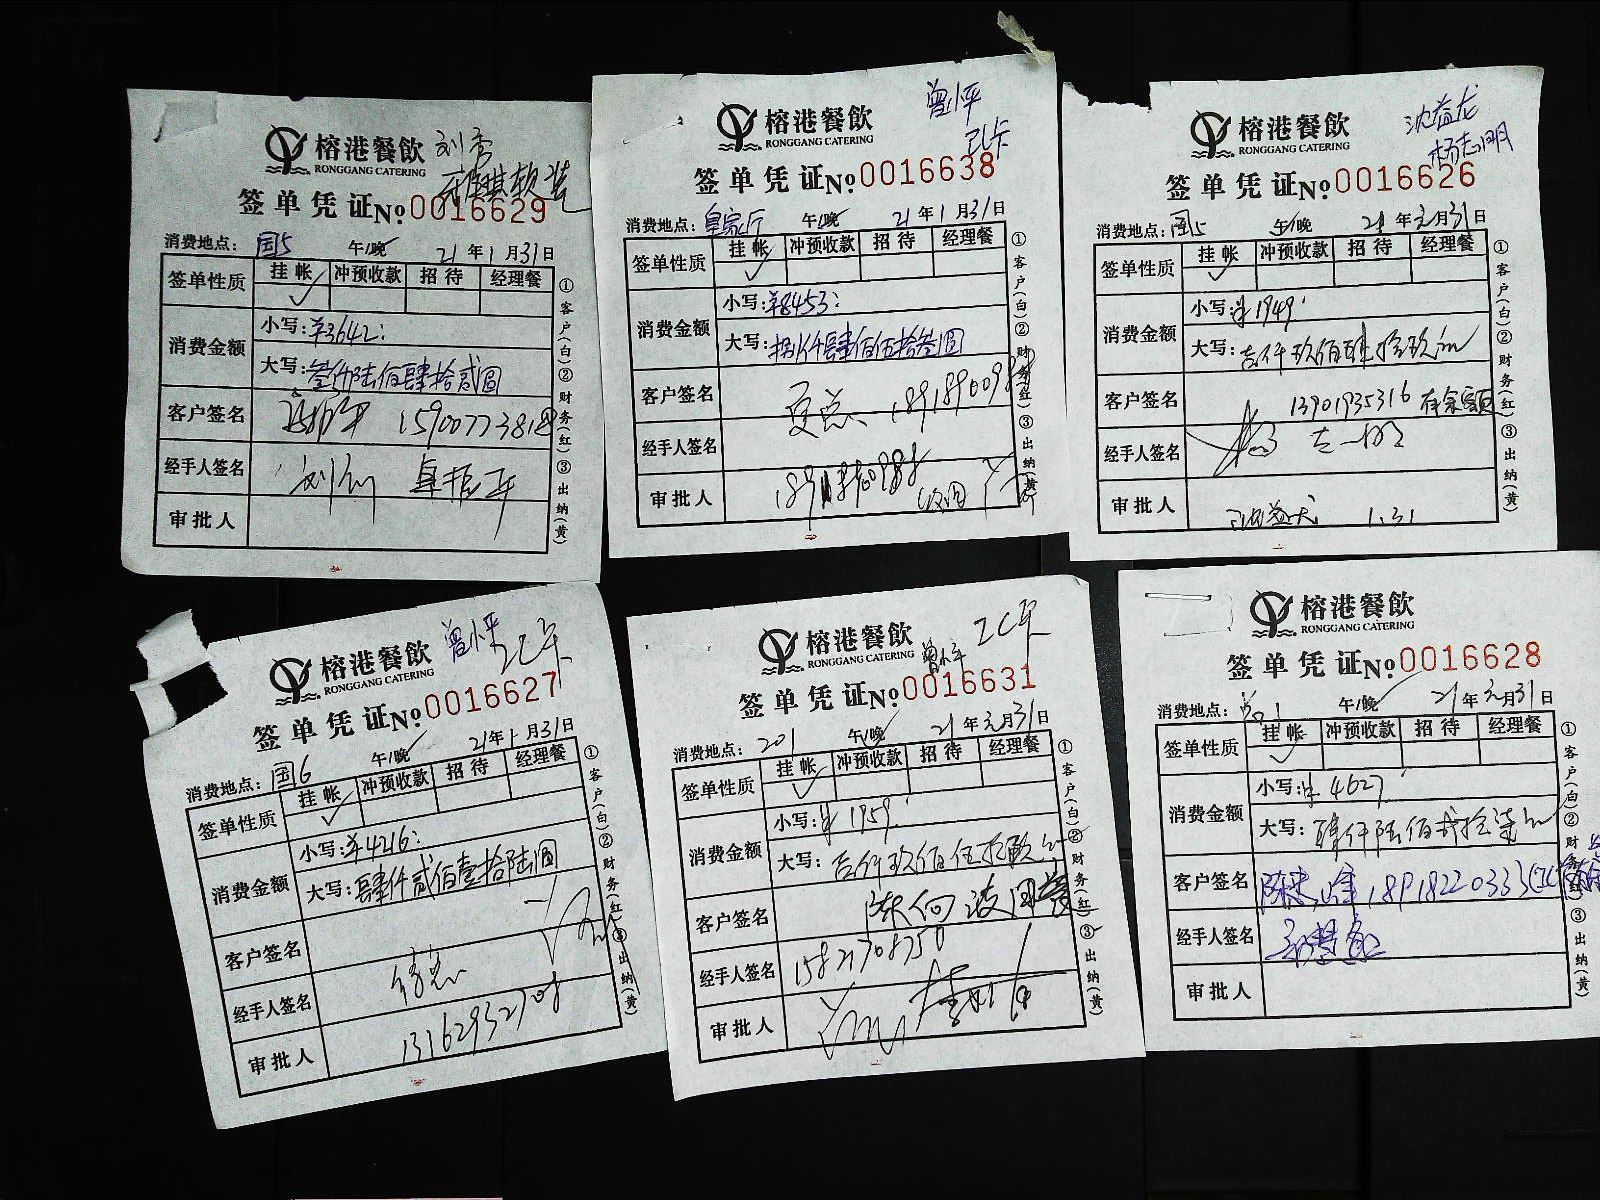 榕港餐飲 刘秀
RONGGANG CATERING
签单凭证 No 0016629
消费地点: 国5 午/晚 21年1月31日
签单性质 挂帐 冲预收款 招待 经理餐
✓
消费金额 小写: ¥3642:
大写: 叁仟陆佰肆拾贰圆
客户签名
经手人签名
审批人
①客户(白)②财务(红)③出纳(黄)
曾小平
榕港餐飲
RONGGANG CATERING
签单凭证 No 0016638
消费地点: 皇家厅 午/晚 21年1月31日
签单性质 挂帐 冲预收款 招待 经理餐
✓
消费金额 小写: ¥8453:
大写: 捌仟肆佰伍拾叁圆
客户签名
经手人签名
审批人
①客户(白)②财务(红)③出纳(黄)
沈益龙
榕港餐飲 杨志明
RONGGANG CATERING
签单凭证 No 0016626
消费地点: 国5 午/晚 21年元月31日
签单性质 挂帐 冲预收款 招待 经理餐
✓
消费金额 小写: ¥1949
大写: 壹仟玖佰肆拾玖元
客户签名 13901935316 有余额
经手人签名
审批人 沈益龙 1.31
①客户(白)②财务(红)③出纳(黄)
榕港餐飲 曾小平 IC卡
RONGGANG CATERING
签单凭证 No 0016627
消费地点: 国6 午/晚 21年1月31日
签单性质 挂帐 冲预收款 招待 经理餐
✓
消费金额 小写: ¥4216:
大写: 肆仟贰佰壹拾陆圆
客户签名
经手人签名
审批人 13162952708
①客户(白)②财务(红)③出纳(黄)
榕港餐飲 曾小平 IC卡
RONGGANG CATERING
签单凭证 No 0016631
消费地点: 201 午/晚 21年元月31日
签单性质 挂帐 冲预收款 招待 经理餐
✓
消费金额 小写: ¥1959
大写: 壹仟玖佰伍拾玖元
客户签名
经手人签名 15821708750
审批人
①客户(白)②财务(红)③出纳(黄)
榕港餐飲
RONGGANG CATERING
签单凭证 No 0016628
消费地点: 午/晚 21年元月31日
签单性质 挂帐 冲预收款 招待 经理餐
✓
消费金额 小写: ¥4627
大写: 肆仟陆佰贰拾柒元
客户签名 18918220333
经手人签名
审批人
①客户(白)②财务(红)③出纳(黄)